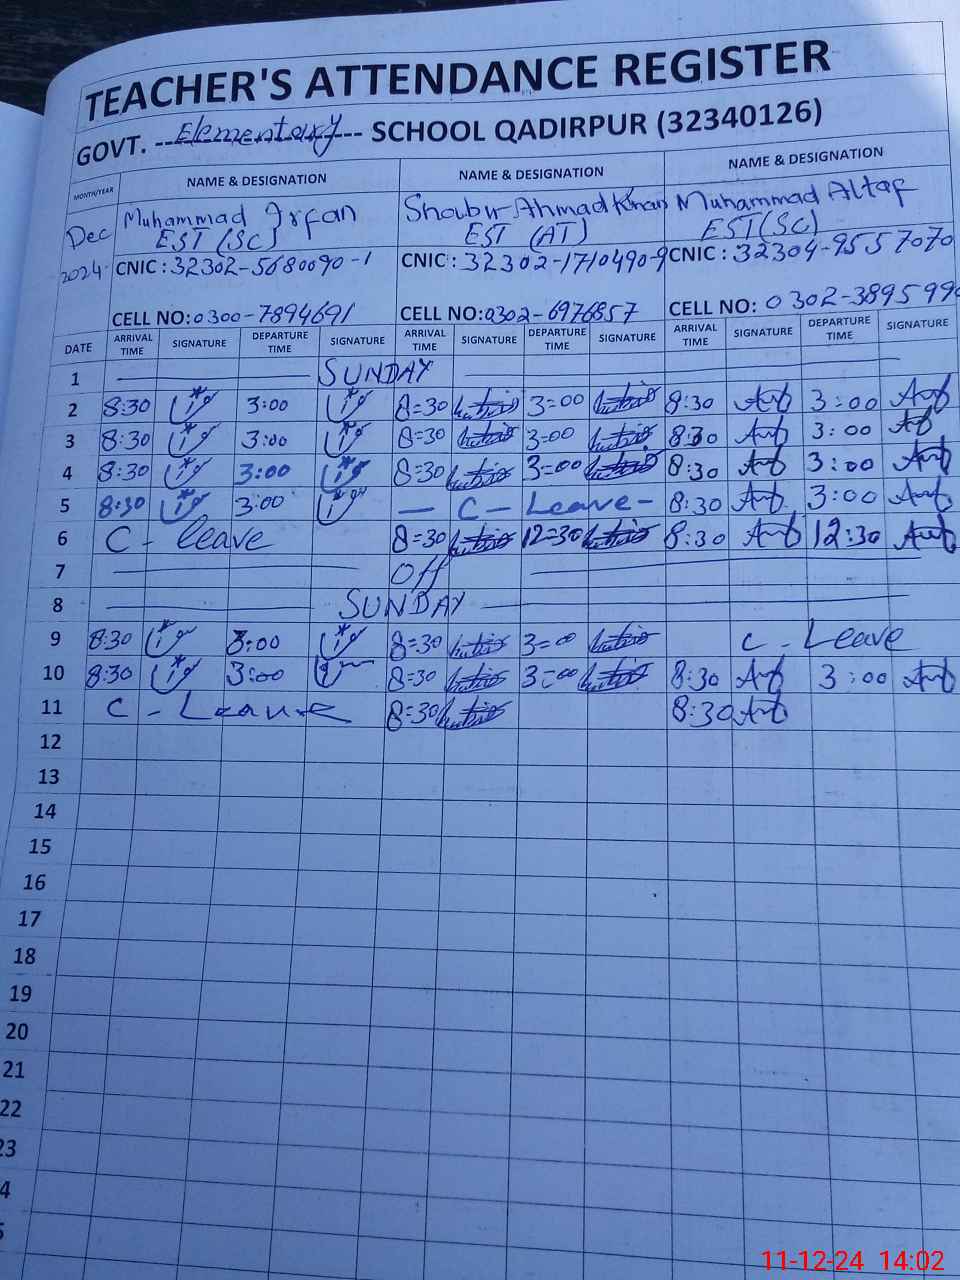 TEACHER'S ATTENDANCE REGISTER
GOVT. Elementary SCHOOL QADIRPUR (32340126)
MONTH/YEAR NAME & DESIGNATION NAME & DESIGNATION NAME & DESIGNATION
Dec Muhammad Irfan Ahmad Khan Muhammad Altaf
EST (SC) EST (AT) EST (SC)
2024 CNIC : 32302-5680090-1 CNIC : 32302-1710490-9 CNIC : 32304-9557070
CELL NO: 0300-7894691 CELL NO: 0302-6976857 CELL NO: 0302-389599
DATE ARRIVAL TIME SIGNATURE DEPARTURE TIME SIGNATURE ARRIVAL TIME SIGNATURE DEPARTURE TIME SIGNATURE ARRIVAL TIME SIGNATURE DEPARTURE TIME SIGNATURE
1 SUNDAY
2 8:30 3:00 8=30 3=00 8:30 3:00
3 8:30 3:00 8=30 3=00 8:30 3:00
4 8:30 3:00 8=30 3=00 8:30 3:00
5 8:30 3:00 - C - Leave - 8:30 3:00
6 C - leave 8=30 12=30 8:30 12:30
7 Off
8 SUNDAY
9 8:30 3:00 8=30 3=00 C - Leave
10 8:30 3:00 8=30 3=00 8:30 3:00
11 C - Leave 8=30 8:30
12
13
14
15
16
17
18
19
20
21
22
23
4
5
11-12-24 14:02